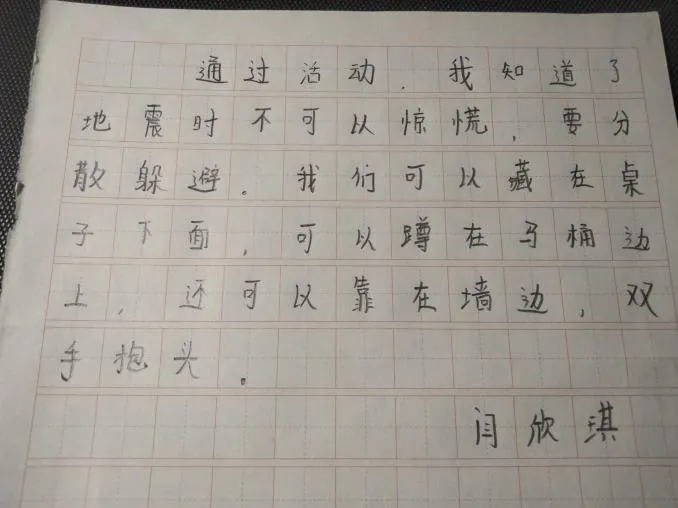 通过活动，我知道了
地震时不可以惊慌，要分
散躲避。我们可以藏在桌
子下面，可以蹲在马桶边
上，还可以靠在墙边，双
手抱头。
闫欣琪